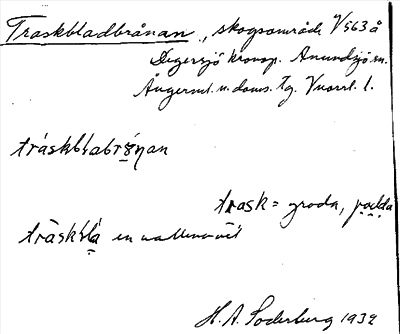 Traskbladbrånan, skogsområde V 563 å
Degersjö kronop. Anundsjö sn.
Ångerml. n. doms. Tg. Vuorrl. l.
tráskblabrånan
trask = groda, padda
trȧskblá en vattenväxt
H. A. Söderberg 1932